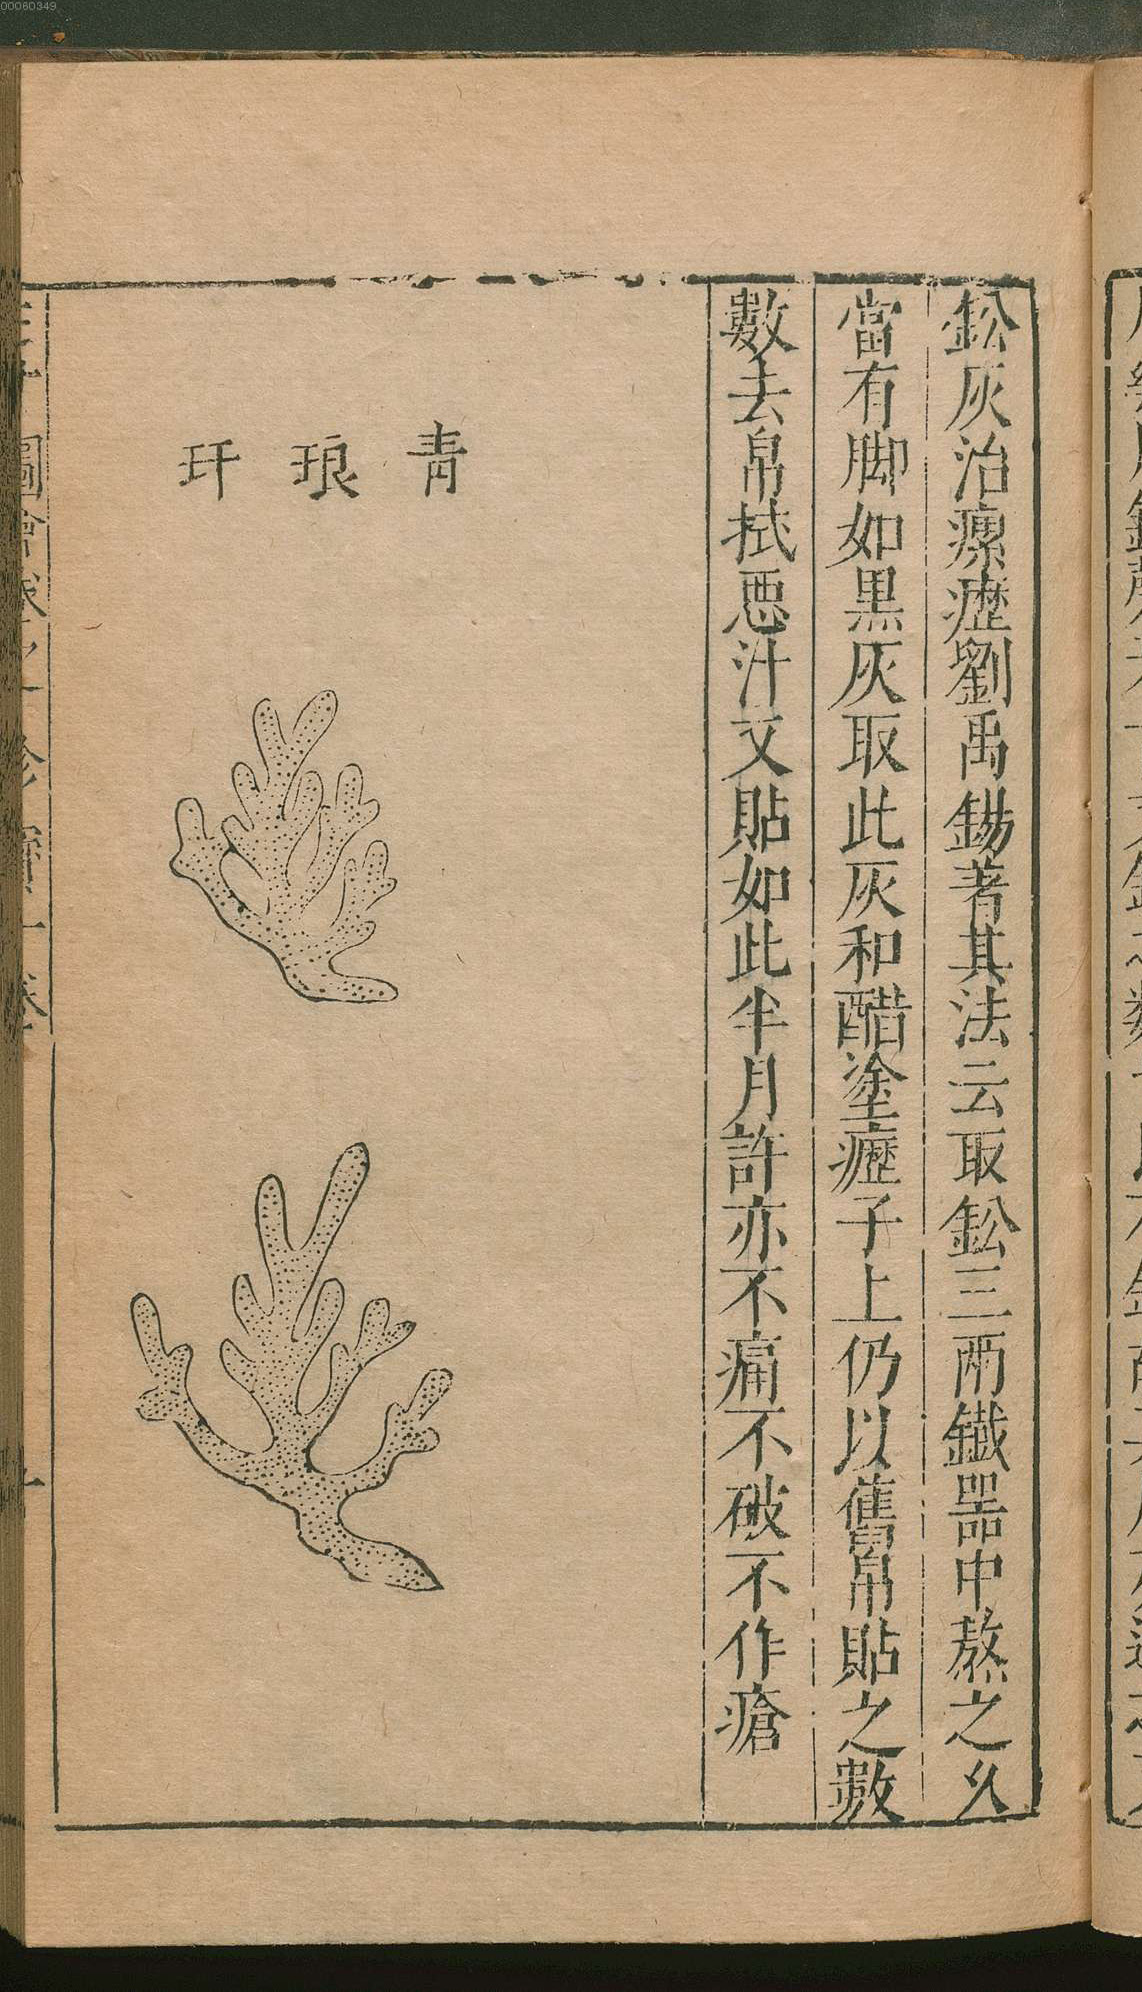 00060349
鈆灰治瘰癧劉禹錫著其法云取鈆三兩鐵器中熬之乆
當有脚如黒灰取此灰和醋塗癧子上仍以舊帛貼之數
數去帛拭惡汁又貼如此半月許亦不痛不破不作瘡
青琅玕
圖會